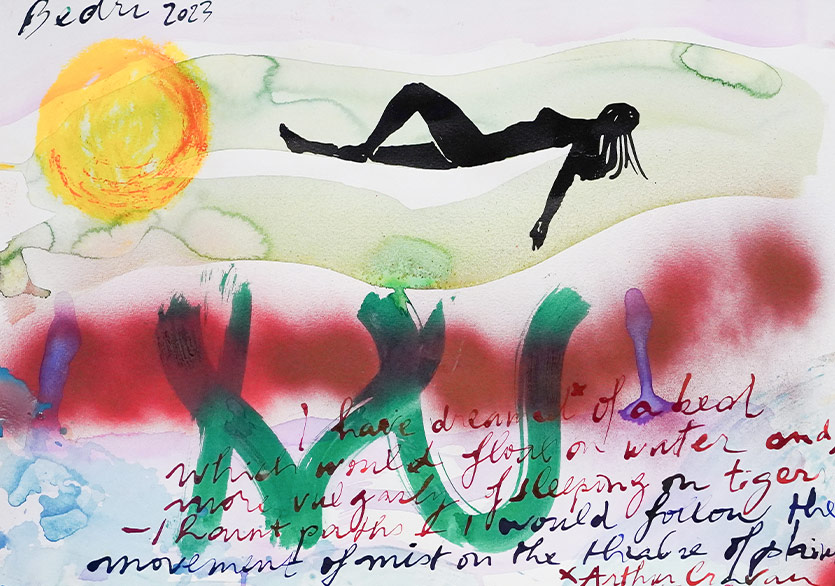 Bedri 2023
I have dreamed* of a bed
which would float on water and,
more vulgarly of sleeping on tiger
- I haunt paths - I would follow the
movement of mist on the theatre of plain
*Arthur Cravan